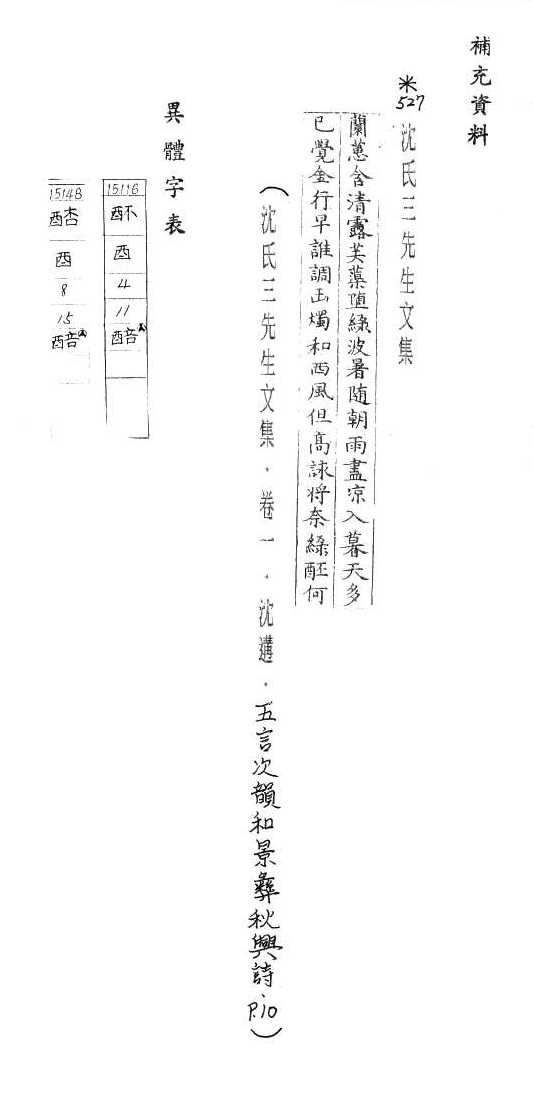 補充資料
米527 沈氏三先生文集
蘭蕙含清露芙蕖墮綠波暑隨朝雨盡凉入暮天多
已覺金行早誰調玉燭和西風但高詠將奈綠醅何
(沈氏三先生文集．卷一．沈遘．五言次韻和景彝秋興詩．P.10)
異體字表
15116
酥
酉
4
11
醅
15148
酉
8
15
醅